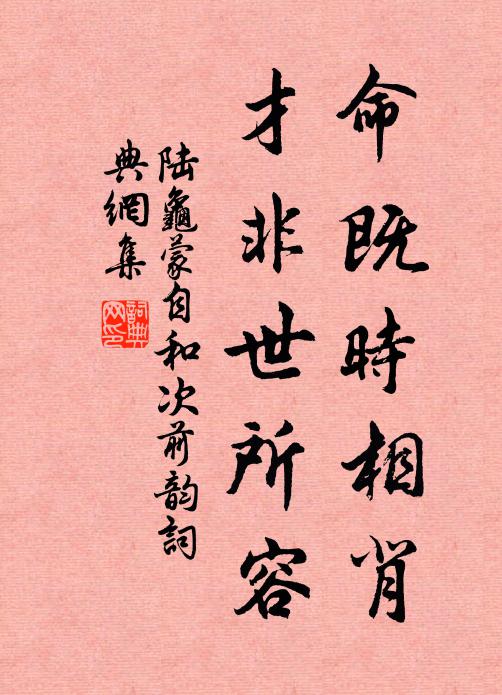 命既時相肖
才非世所容
陸龜蒙自和次前韵詞
典網集
詞典
网印